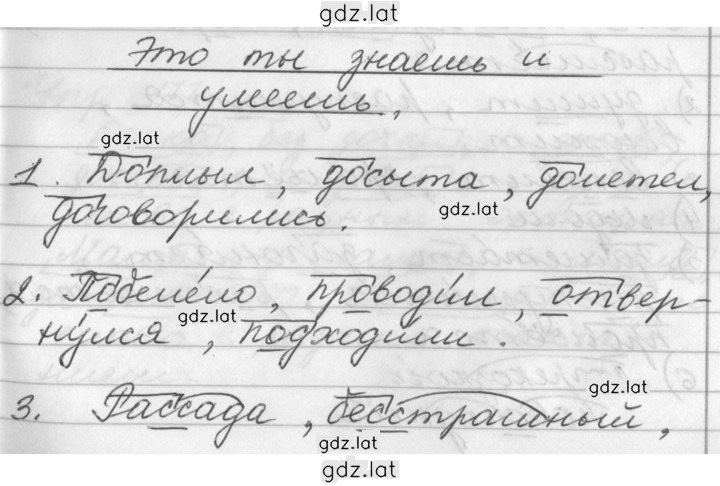 gdz.lat
Это ты знаешь и
умеешь.
gdz.lat
1. Доплыл, досыта, долетел,
gdz.lat
договорились.
2. Побеле́ло, проводи́л, отвер-
gdz.lat
ну́лся, подходи́ли.
gdz.lat
3. Рассада, бесстрашный,
gdz.lat
gdz.lat